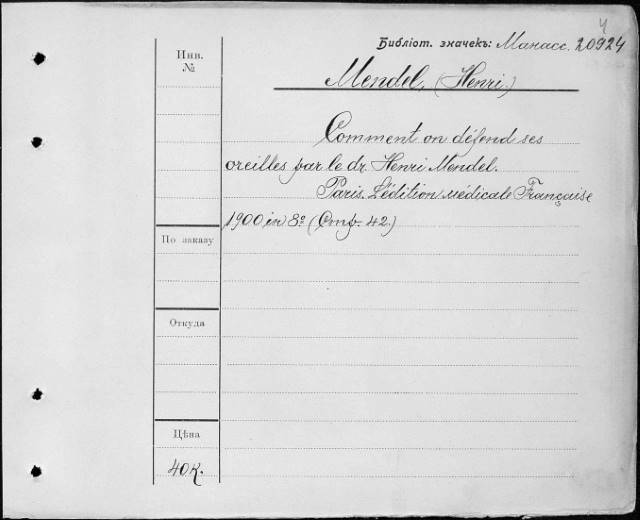 4
Библіот. значекъ: Манасс. 20924
Инв.
№
Mendel, (Henri.)
Comment on défend ses
oreilles par le dr. Henri Mendel.
Paris. L'édition médicale Française
1900 in 8º (Стр. 42.)
По заказу
Откуда
Цѣна
40к.